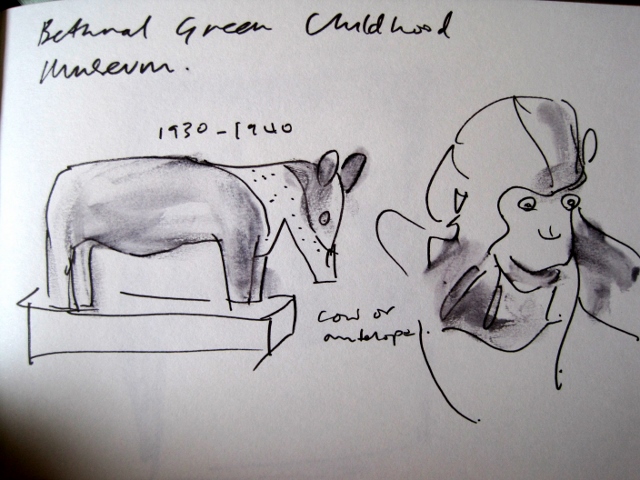 Bethnal Green Childhood
Museum.
1930-1940
cow or
antelope.